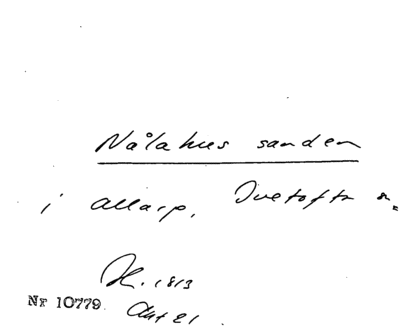 Nålahus sanden
i allarp, Ivetofta s.
K. 1813
Nr 10779
Akt 21